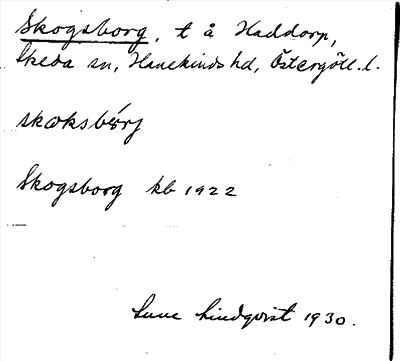 Skogsborg, t å Haddorp,
Skeda sn, Hanekinds hd, Östergötl. l.
skoksbórj
Skogsborg kb 1922
Sune Lindqvist 1930.